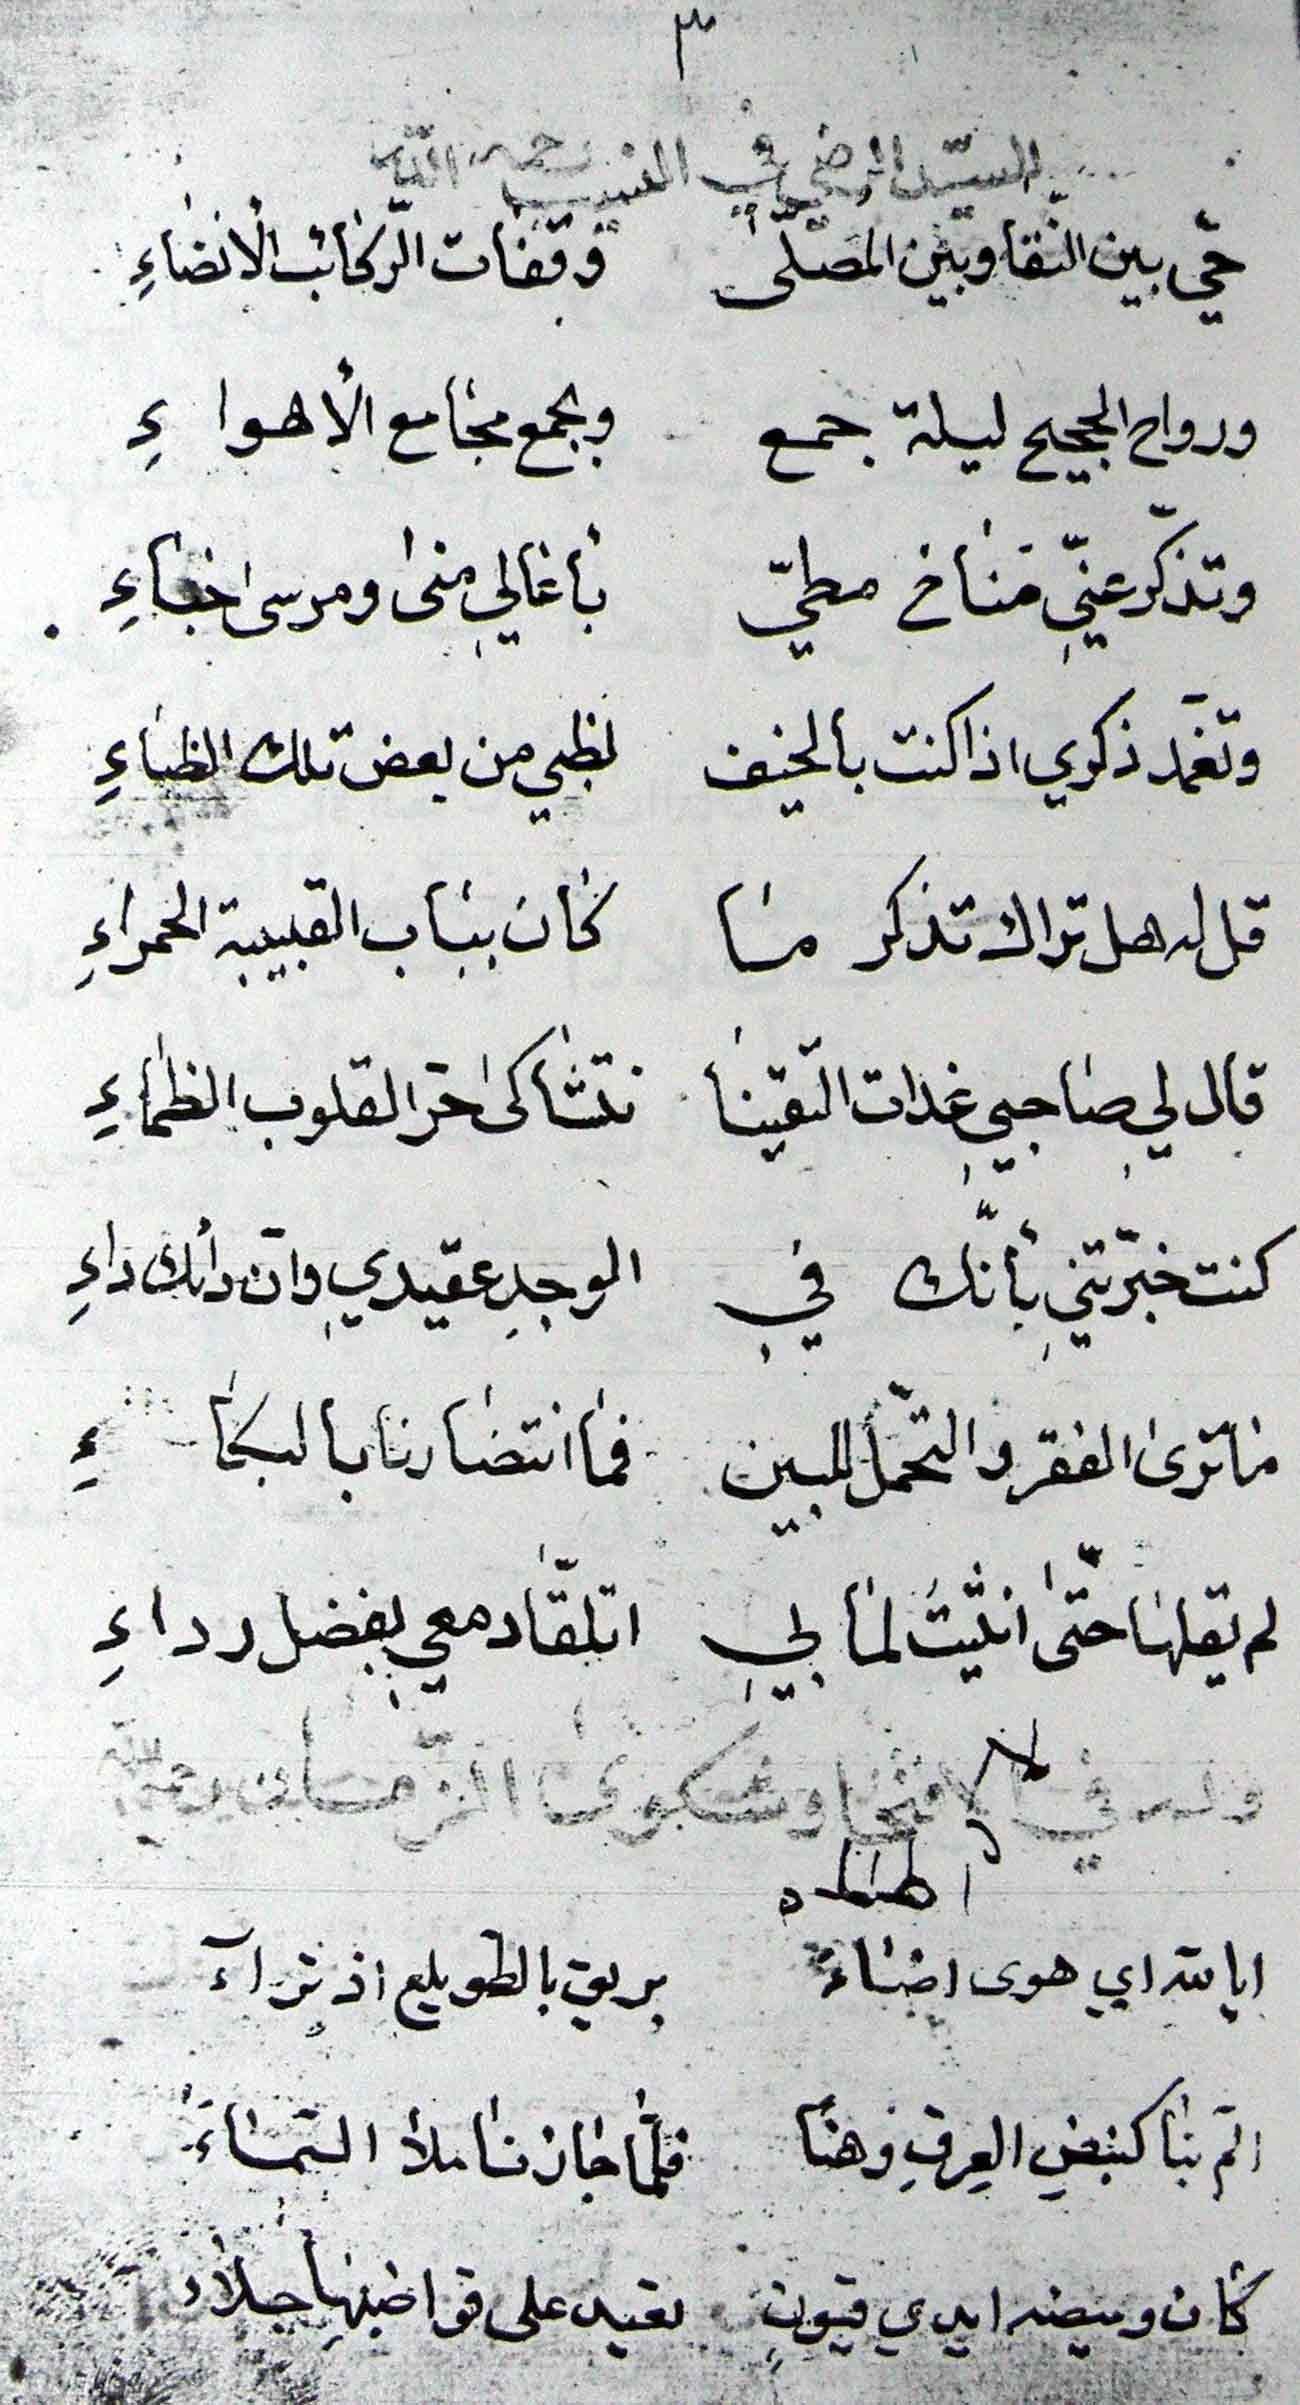 ٣
للسيّد الرضي في النسيب رحمه اللّه
حيّ بين النّقا وبين المصلّى وقفات الرّكائب الأنضاءِ
ورواح الحجيج ليلة جمع وبجمع مجامع الأهواءِ
وتذكّر عنّي مناخ مطيّ بأعالي منى ومرسى خباءِ
وتعمّد ذكري اذا كنت بالخيف لظبي من بعض تلك الظباءِ
قل له هل تراك تذكر ما كان بباب القبيبة الحمراءِ
قال لي صاحبي غدات التقينا نتشاكى حرّ القلوب الظماءِ
كنت خبّرتني بأنّك في الوجدِ عقيدي وانّ دائك داءِ
ما ترى النفر والتحمّل للبين فما انتضارنا بالبكاءِ
لم يقلها حتّى انثنيتُ لما بي اتلقّا دمعي بفضل رداءِ
وله في الافتخا وشكوى الزّمان رحمه اللّه
ايا لله اي هوى اضاءَ بريق بالطويلع اذ ترآءَ
المّ بنا كنبضِ العِرقِ وهنًا فلمّا جازنا ملأ السّماءَ
كأن وميضه ايدي قيونٍ تعيد على قواضبها جلاء